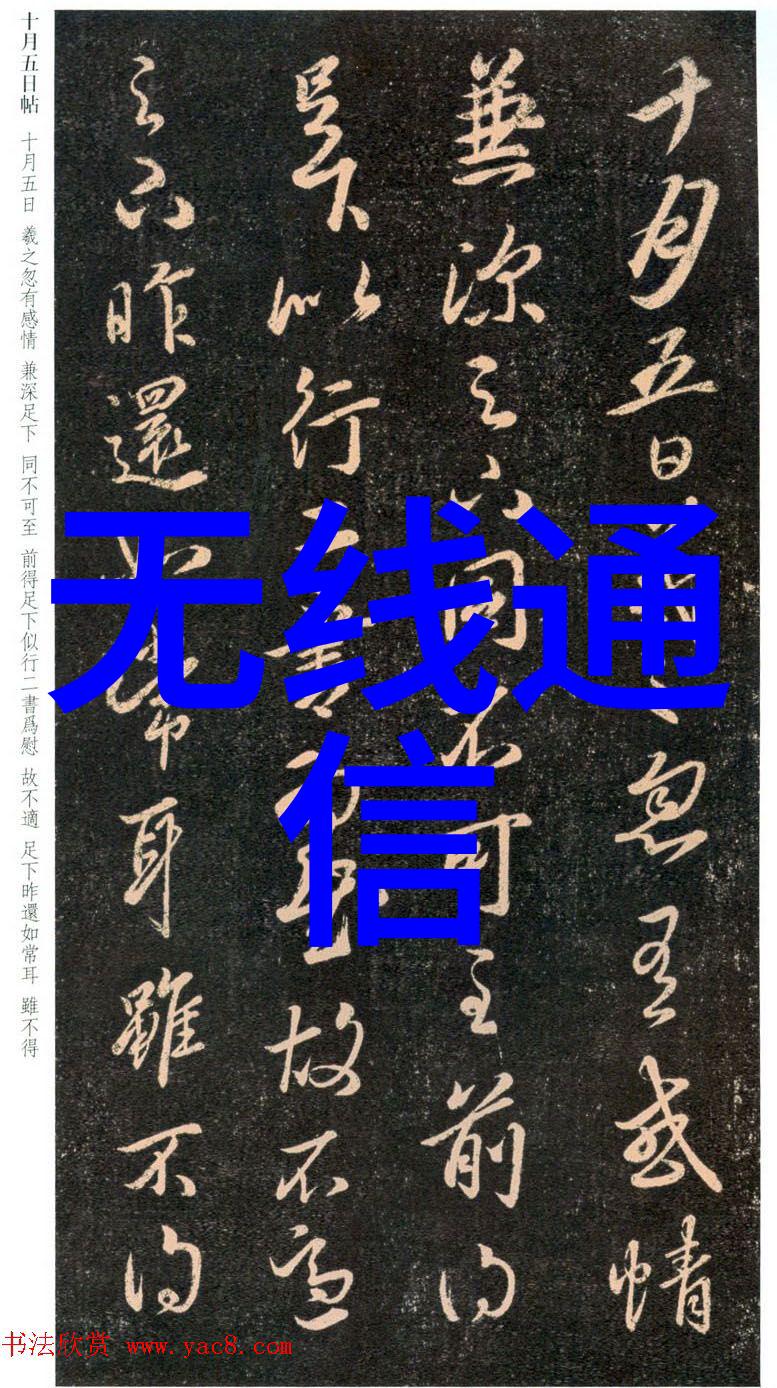 十月五日帖 十月五日 羲之忽有感情 兼深足下 同不可至 前得足下似行二書爲慰 故不適 足下昨還如常耳 雖不得
十月五日羲之忽有感情
兼深足下同不可至前得
足下似行二書爲慰故不適
足下昨還如常耳雖不得
无线通
信
书法欣赏 www.yac8.com